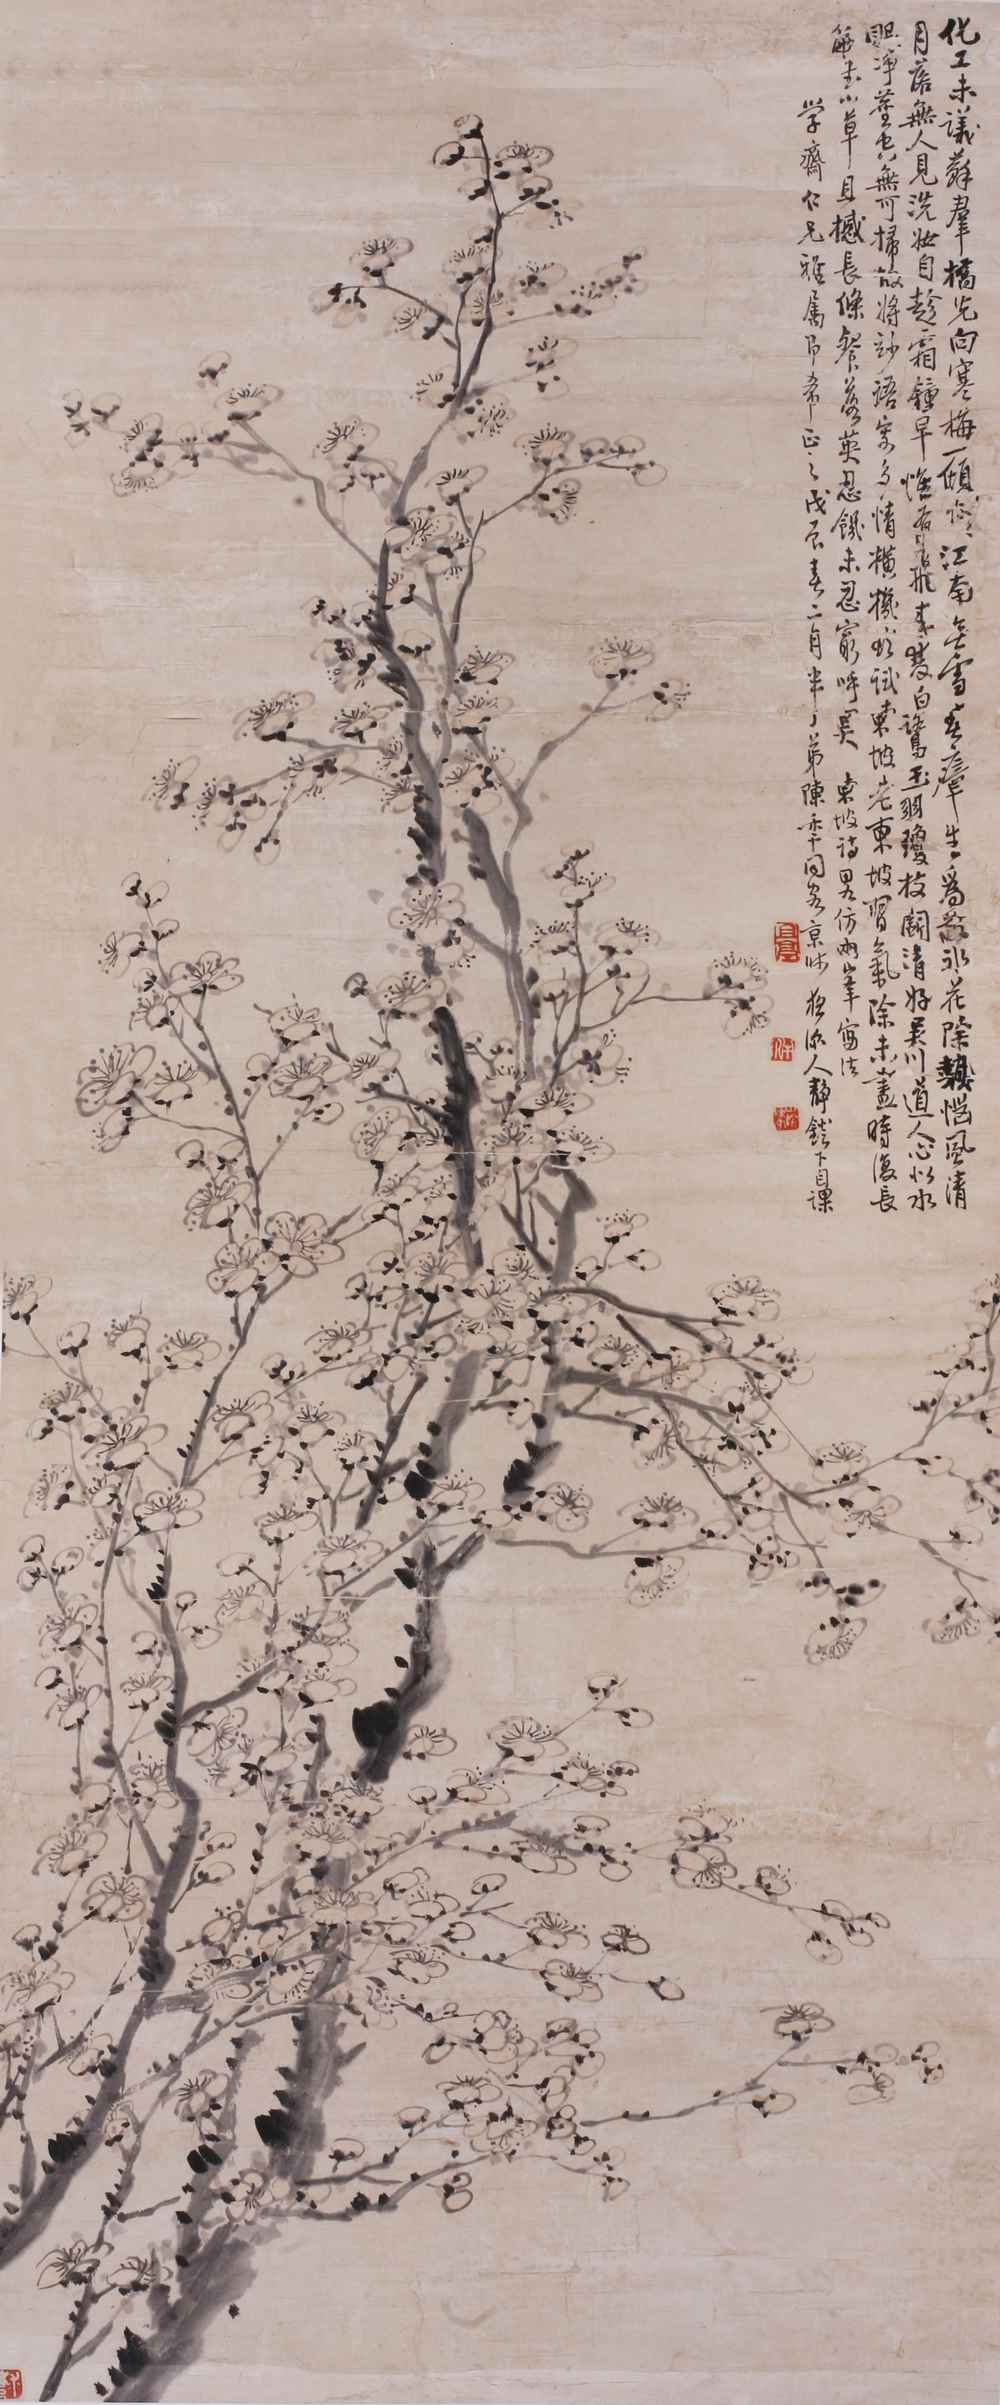 化工未議蘇群槁先向寒梅一傾倒江南無雪春瘴生為散冰花除熱惱風清
月落無人見洗妝自趁霜鐘早惟有飛來雙白鷺玉羽瓊枝鬪清好吳山道人心似水
眼淨塵空無可掃故將妙語寄多情橫機欲試東坡老東坡習氣除未盡時復長
篇書小草且撼長條餐落英忍饑未忍窮呼昊 東坡詩畧仿兩峯寫法
學齋仁兄雅屬即希正之戊辰春二月半丁弟陳年同客京師 夜深人靜鐙下自課